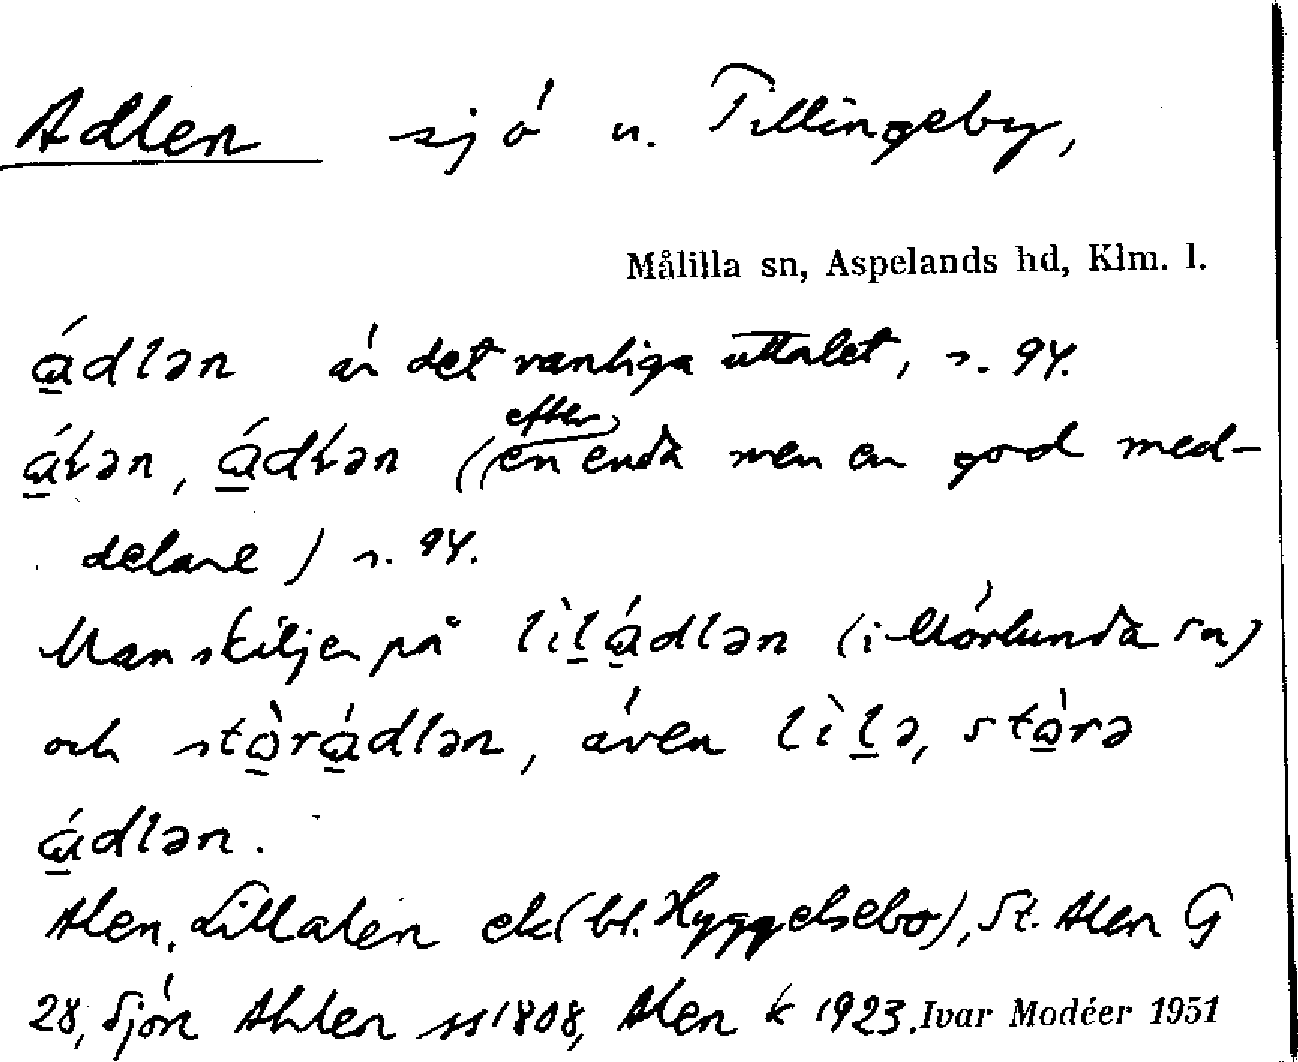 Adlen sjö n. Tillingeby,
Målilla sn, Aspelands hd, Klm. l.
ádlən är det vanliga uttalet, s. 94.
áłən, ádłən (efter en enda men en god med-
delare) s. 94.
Man skiljer på lìládlən (i Mörlunda sn)
och stòrádlən, även lìlə, stòrə
ádlən.
Alen, Lillalen ek (bl. Hyggelsebo), St. Alen G
28, Sjön Ahlen ss 1808, Alen k 1923. Ivar Modéer 1951